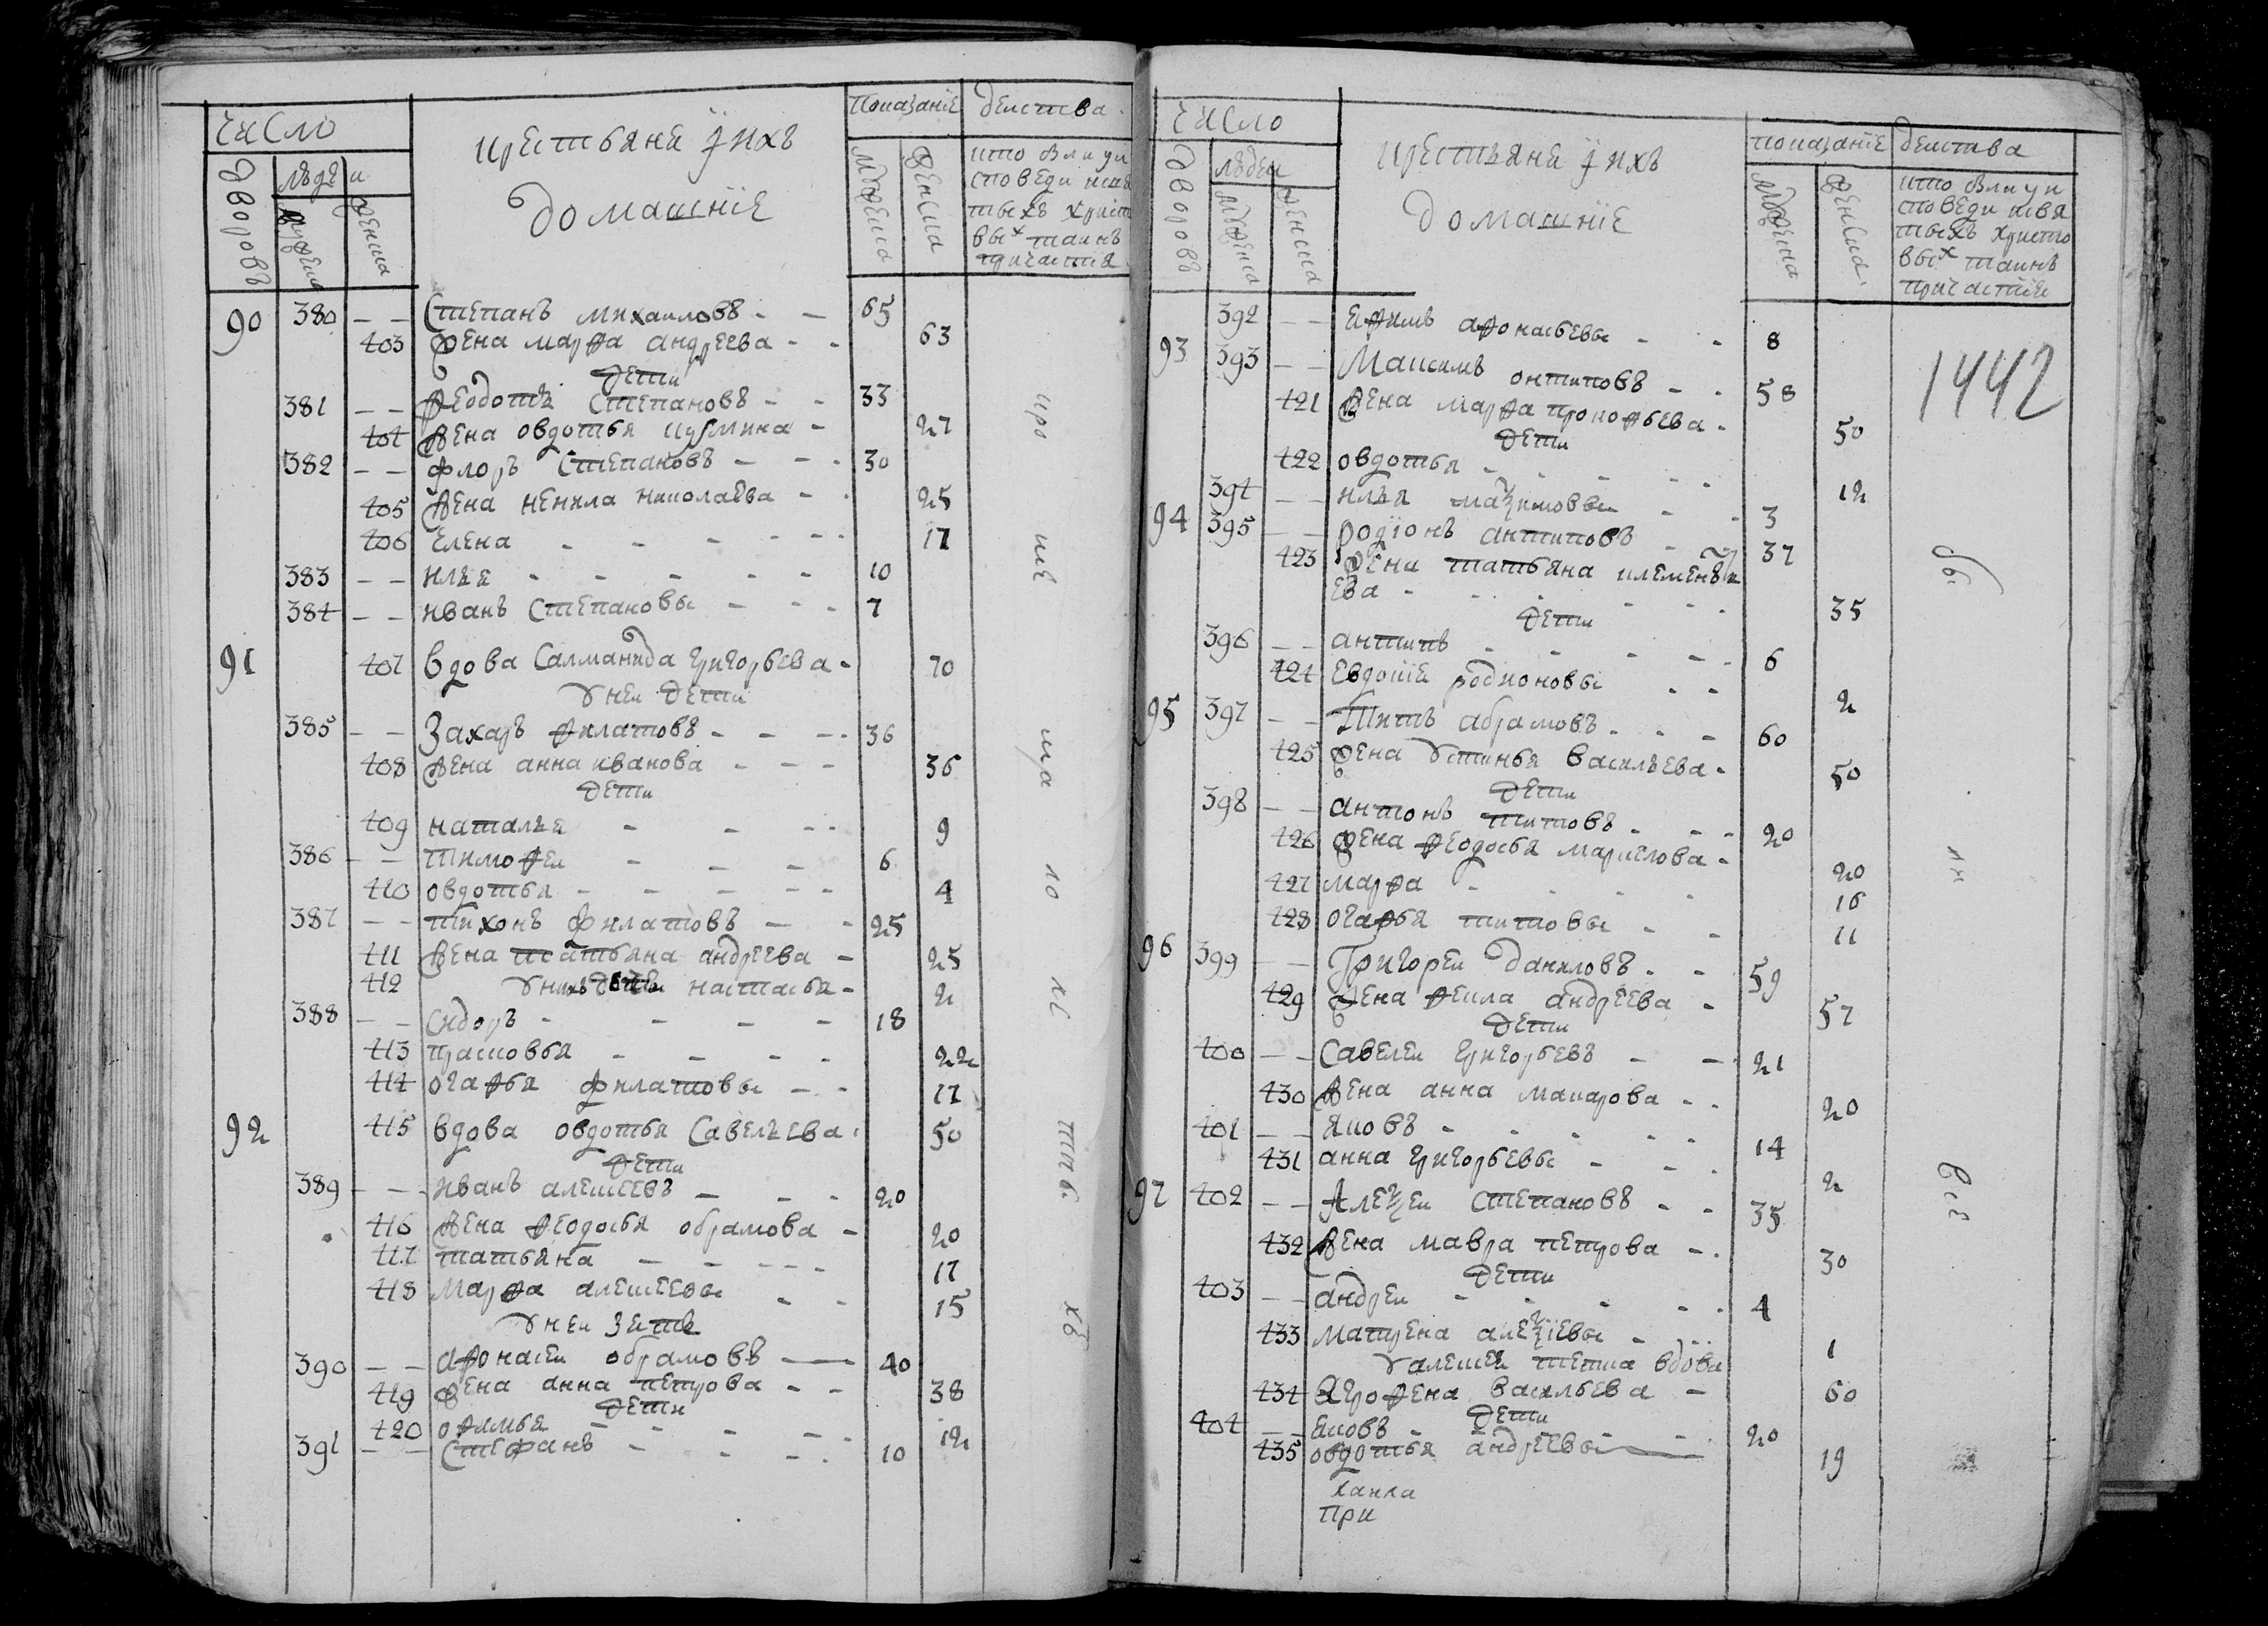 число
дворовъ
людей
мужеска
женска
крестьяне и ихъ
домашние
показание
мужеска
женска
действа
кто был у и
споведи и свя
тыхъ христо
выхъ таинъ
причастия
90 380 – – Степанъ михаиловъ – – 65
403 жена марфа андреева – – 63
дети
381 – – Феодотъ Степановъ – – 33
404 жена овдотья кузмина – 27
382 – – флоръ Степановъ – – 30
405 жена ненила николаева – 25
406 елена – – – – 17
383 – – илья – – – – 10
384 – – иванъ Степановы – – 7
91 407 вдова Салманида григорьева – 70
у неи дети
385 – – Захаръ Филатовъ – – 36
408 жена анна иванова – – – 36
дети
409 наталья – – – 9
386 – – тимофеи – – – 6
410 овдотья – – – – 4
387 – – тихонъ филатовъ – – 25
411 жена татьяна андреева – 25
412 у нихъ дочь настасья – 2
388 – – сидоръ – – – – 18
413 прасковья – – – – 22
414 огафья филатовы – – 17
92 415 вдова овдотья Савельева 50
дети
389 – – иванъ алексеевъ – – – 20
416 жена феодосья обрамова – 20
417 татьяна – – – – 17
418 марфа алексеевы – – 15
у неи зять
390 – – афонасеи обрамовъ – 40
419 жена анна петрова – – 38
дети
420 офимья – – – – 12
391 – – Стефанъ – – – 10
число
дворовъ
людей
мужеска
женска
крестьяне и ихъ
домашние
показание
мужеска
женска
действа
кто был у и
споведи и свя
тыхъ христо
выхъ таинъ
причастие
1442
392 – – ефимъ афонасьевы – – 8
93 393 – – Максимъ онтиповъ – – 58
421 жена марфа прокофьева – 50
дети
422 овдотья – – – – 12
394 – – илья мазимовы – – 3
94 395 – – родионъ антиповъ – – 37
423 жена татьяна клементь
ева – – – – – 35
дети
396 – – антипъ – – – – 6
424 евдокие родионовы – – 2
95 397 – – Титъ абрамовъ – – – 60
425 жена устинья васильева – 50
дети
398 – – антонъ титовъ – – – 20
426 жена феодосья маркелова – 20
427 марфа – – – – 16
428 огафья титовы – – 11
96 399 – – Григореи даниловъ – – 59
429 жена фекла андреева – 57
дети
400 – – Савелеи григорьевъ – – 21
430 жена анна макарова – – 20
401 – – яковъ – – – – 14
431 анна григорьевы – – – 2
97 402 – – Алезеи степановъ – – 35
432 жена мавра петрова – – 30
дети
403 – – андреи – – – – 4
433 матрена алезиевы – – 1
у алексея тетка вдова
434 Агрофена васильева – 60
дети
404 – – яковъ – – – – 20
435 овдотья андреевы 19
при